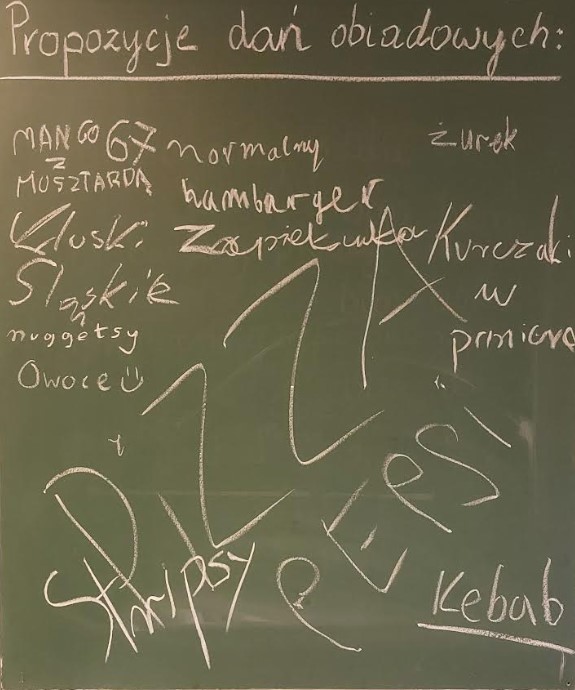 Propozycje dań obiadowych:
MANGO 67
Z
MUSZTARDĄ
normalny
hamburger
żurek
Kluski
Śląskie
Zapiekanka
Kurczaki
w
nuggetsy
Owoce
PIZZA
PEPSI
Stripsy
Kebab